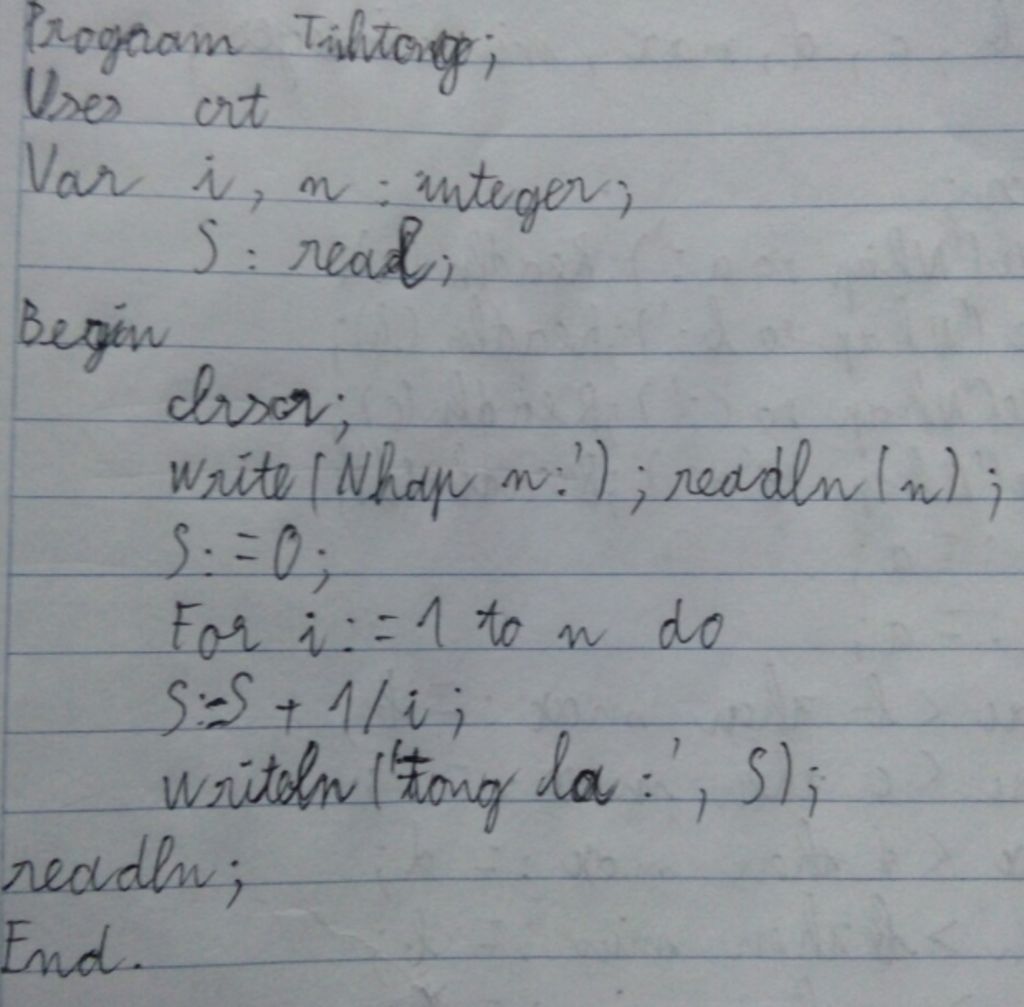 Program Tinhtong;
Uses crt
Var i, n : integer;
S : real;
Begin
clrscr;
write (Nhap n:'); readln (n);
S:=0;
For i:=1 to n do
S:=S + 1/i;
writeln ('tong la :', S);
readln;
End.